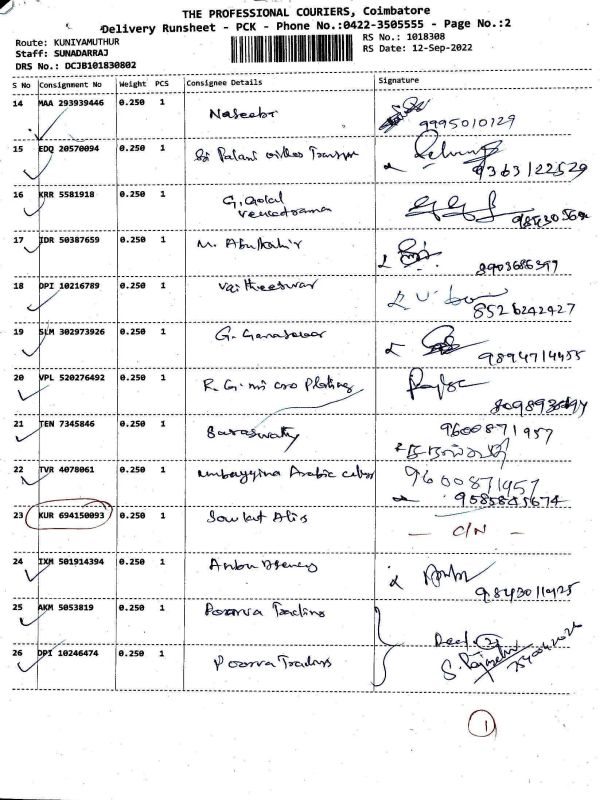 THE PROFESSIONAL COURIERS, Coimbatore
Delivery Runsheet - PCK - Phone No.:0422-3505555 - Page No.:2
Route: KUNIYAMUTHUR
Staff: SUNADARRAJ
DRS No.: DCJB101830802
RS No.: 1018308
RS Date: 12-Sep-2022
S No Consignment No Weight PCS Consignee Details Signature
14 MAA 293939446 0.250 1 Naseebr
9995010129
15 EDQ 20570094 0.250 1 Sri Palani
9363122529
16 KRR 5581918 0.250 1 G. Golal
17 IDR 50387659 0.250 1 M. Abuthahir
18 DPI 10216789 0.250 1 Vaitheeswar
8526242427
19 SLM 302973926 0.250 1 G. Ganaseear
9894714455
20 VPL 520276492 0.250 1 R. G. micro Plating
21 TEN 7345846 0.250 1 Saraswathy
9600871957
22 TVR 4078061 0.250 1 Arabic
9600871957
9585845674
23 KUR 694150093 0.250 1 Sowkat Alis
- C/N -
24 IXM 501914394 0.250 1 Anbu Agency
9843011425
25 AKM 5053819 0.250 1 Poorva Trading
26 DPI 10246474 0.250 1 Poorva Trading
1